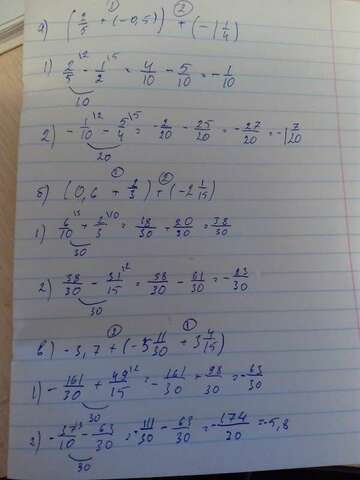 а) (2/5 + (-0,5)) + (-1 1/4)
1) 2/5 - 1/2 = 4/10 - 5/10 = -1/10
10
2) -1/10 - 5/4 = -2/20 - 25/20 = -27/20 = -1 7/20
20
б) (0,6 + 2/3) + (-2 1/15)
1) 6/10 + 2/3 = 18/30 + 20/30 = 38/30
30
2) 38/30 - 31/15 = 38/30 - 61/30 = -23/30
30
в) -3,7 + (-5 11/30 + 3 4/15)
1) -161/30 + 49/15 = -161/30 + 98/30 = -63/30
30
2) -37/10 - 63/30 = -111/30 - 63/30 = -174/20 = -5,8
30